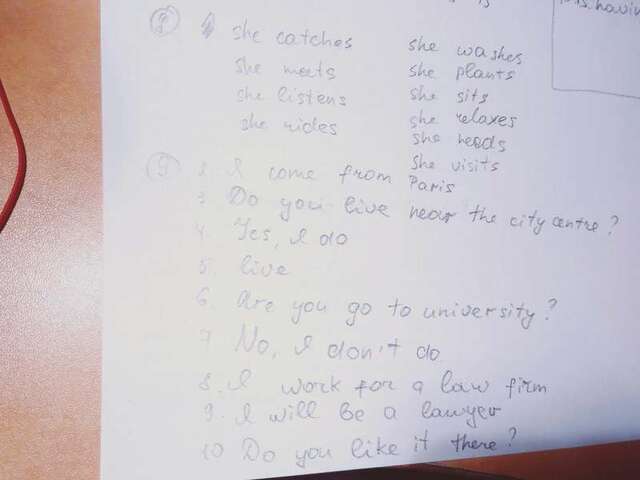 having
8 she catches
she meets
she listens
she rides
she washes
she plants
she sits
she relaxes
she needs
she visits
9 2. I come from Paris
3 Do you live near the city centre?
4 Yes, I do
5. live
6. Are you go to university?
7 No, I don't do
8. I work for a law firm
9. I will be a lawyer
10 Do you like it there?